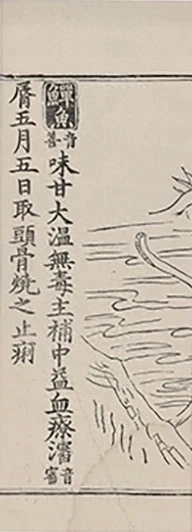 鱓魚音善味甘大溫無毒主補中益血療瀋音審
脣五月五日取頭骨燒之止痢